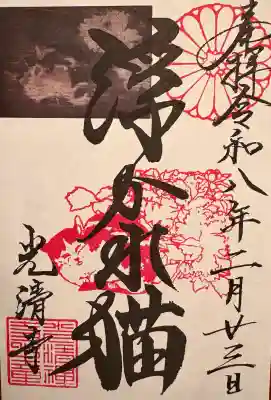 奉拝令和八年二月廿三日
浮かれ猫
光清寺